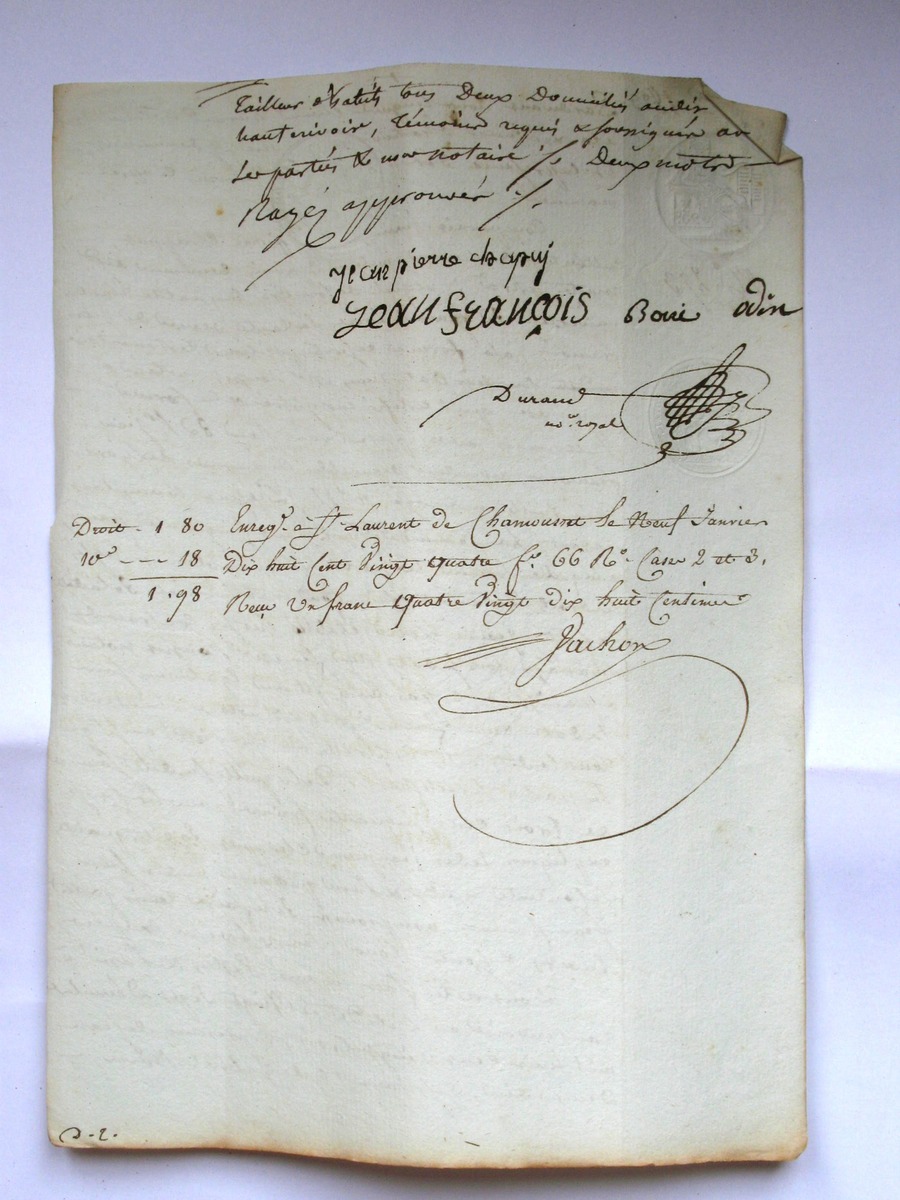 Tailleur d'habits tous Deux Domiciliés audit
hauterivoir, témoins requis & soussignés av
Les parties & moi notaire ·/. Deux mots
Rayés approuvés ·/.
jean pierre chapuj
jean françois Boué odin
Durand
no.re royal
Droit - 1 80 Enreg.t à S.t Laurent de Chamousset le Neuf Janvier
10e --- 18 Dix huit Cent Vingt quatre f.o 66 R.o Case 2 et 3.
1.98 Reçu Un franc quatre Vingt dix huit Centimes